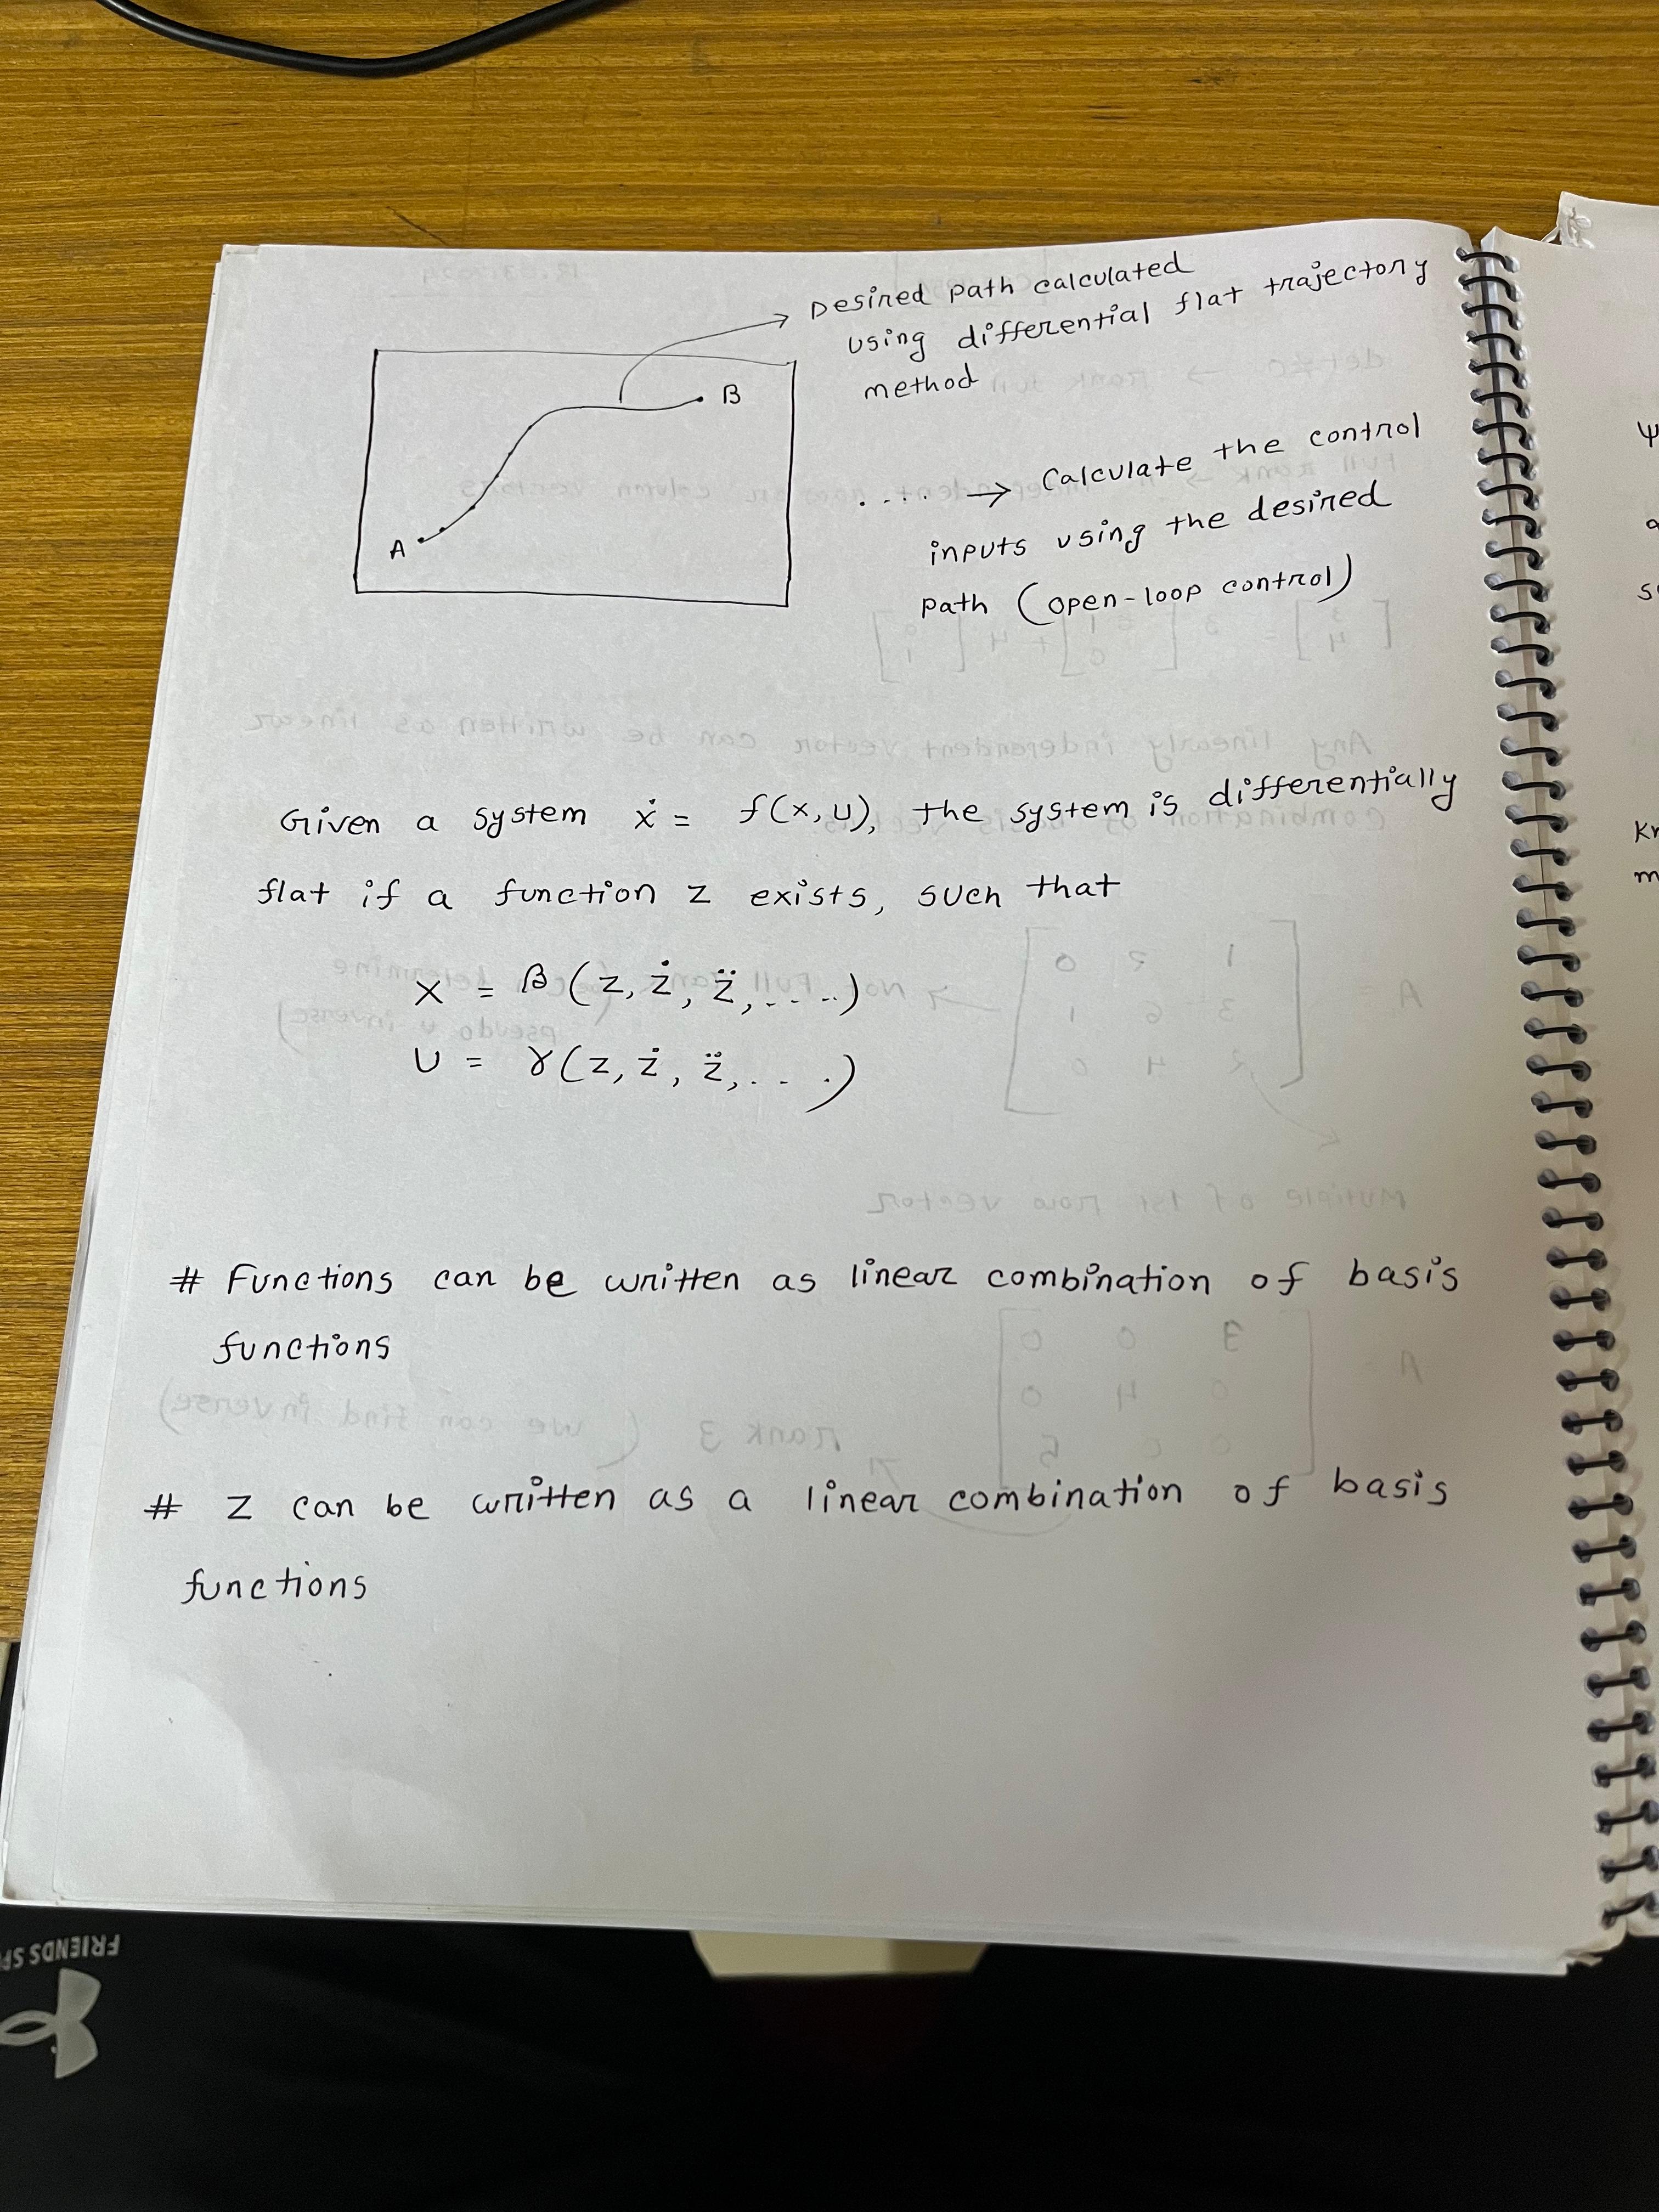 Desired path calculated
using differential flat trajectory
method
B
A
. . . . → Calculate the control
inputs using the desired
path (open-loop control)
Given a system ẋ = f(x, u), the system is differentially
flat if a function z exists, such that
x = β(z, ż, z̈, . . . .)
u = γ(z, ż, z̈, . . . .)
# Functions can be written as linear combination of basis
functions
# z can be written as a linear combination of basis
functions
ψ
FRIENDS